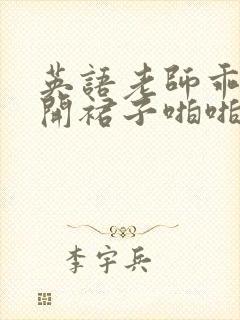 英語老師乖
開裙子啪啪
李宇兵